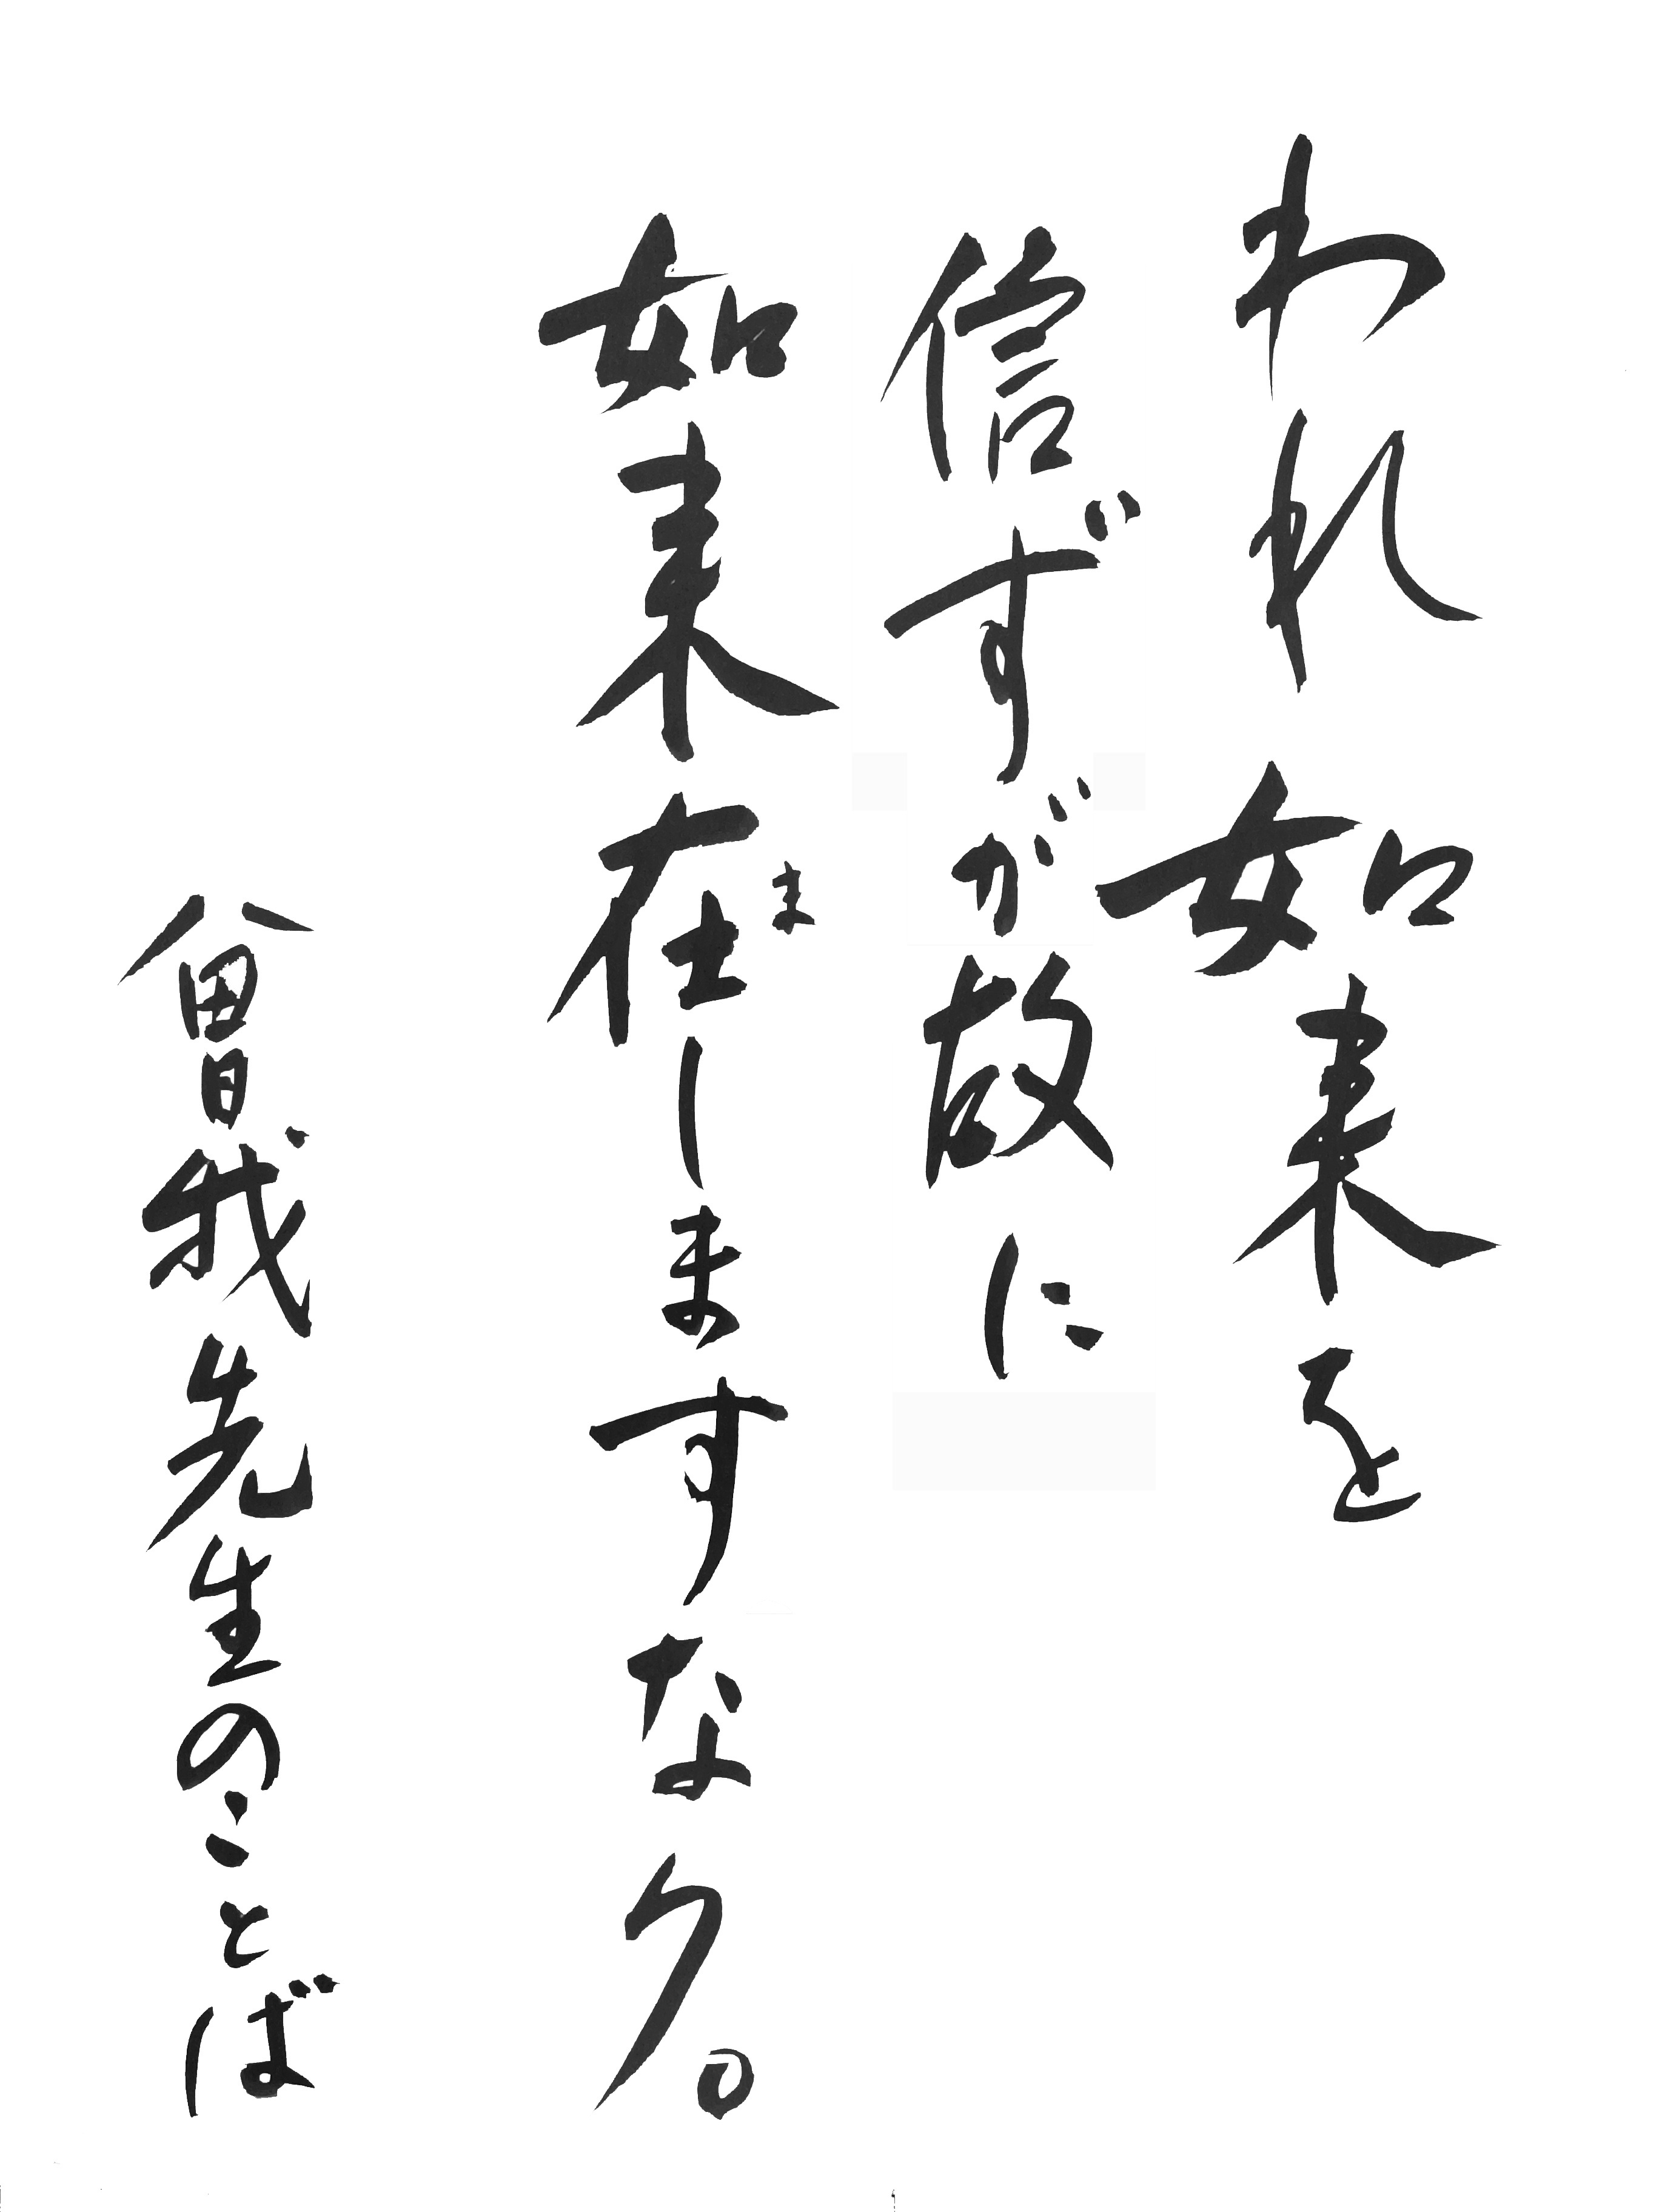 われ如来を
信ずが故に
如来在しますなり。
ま
曽我先生のことば